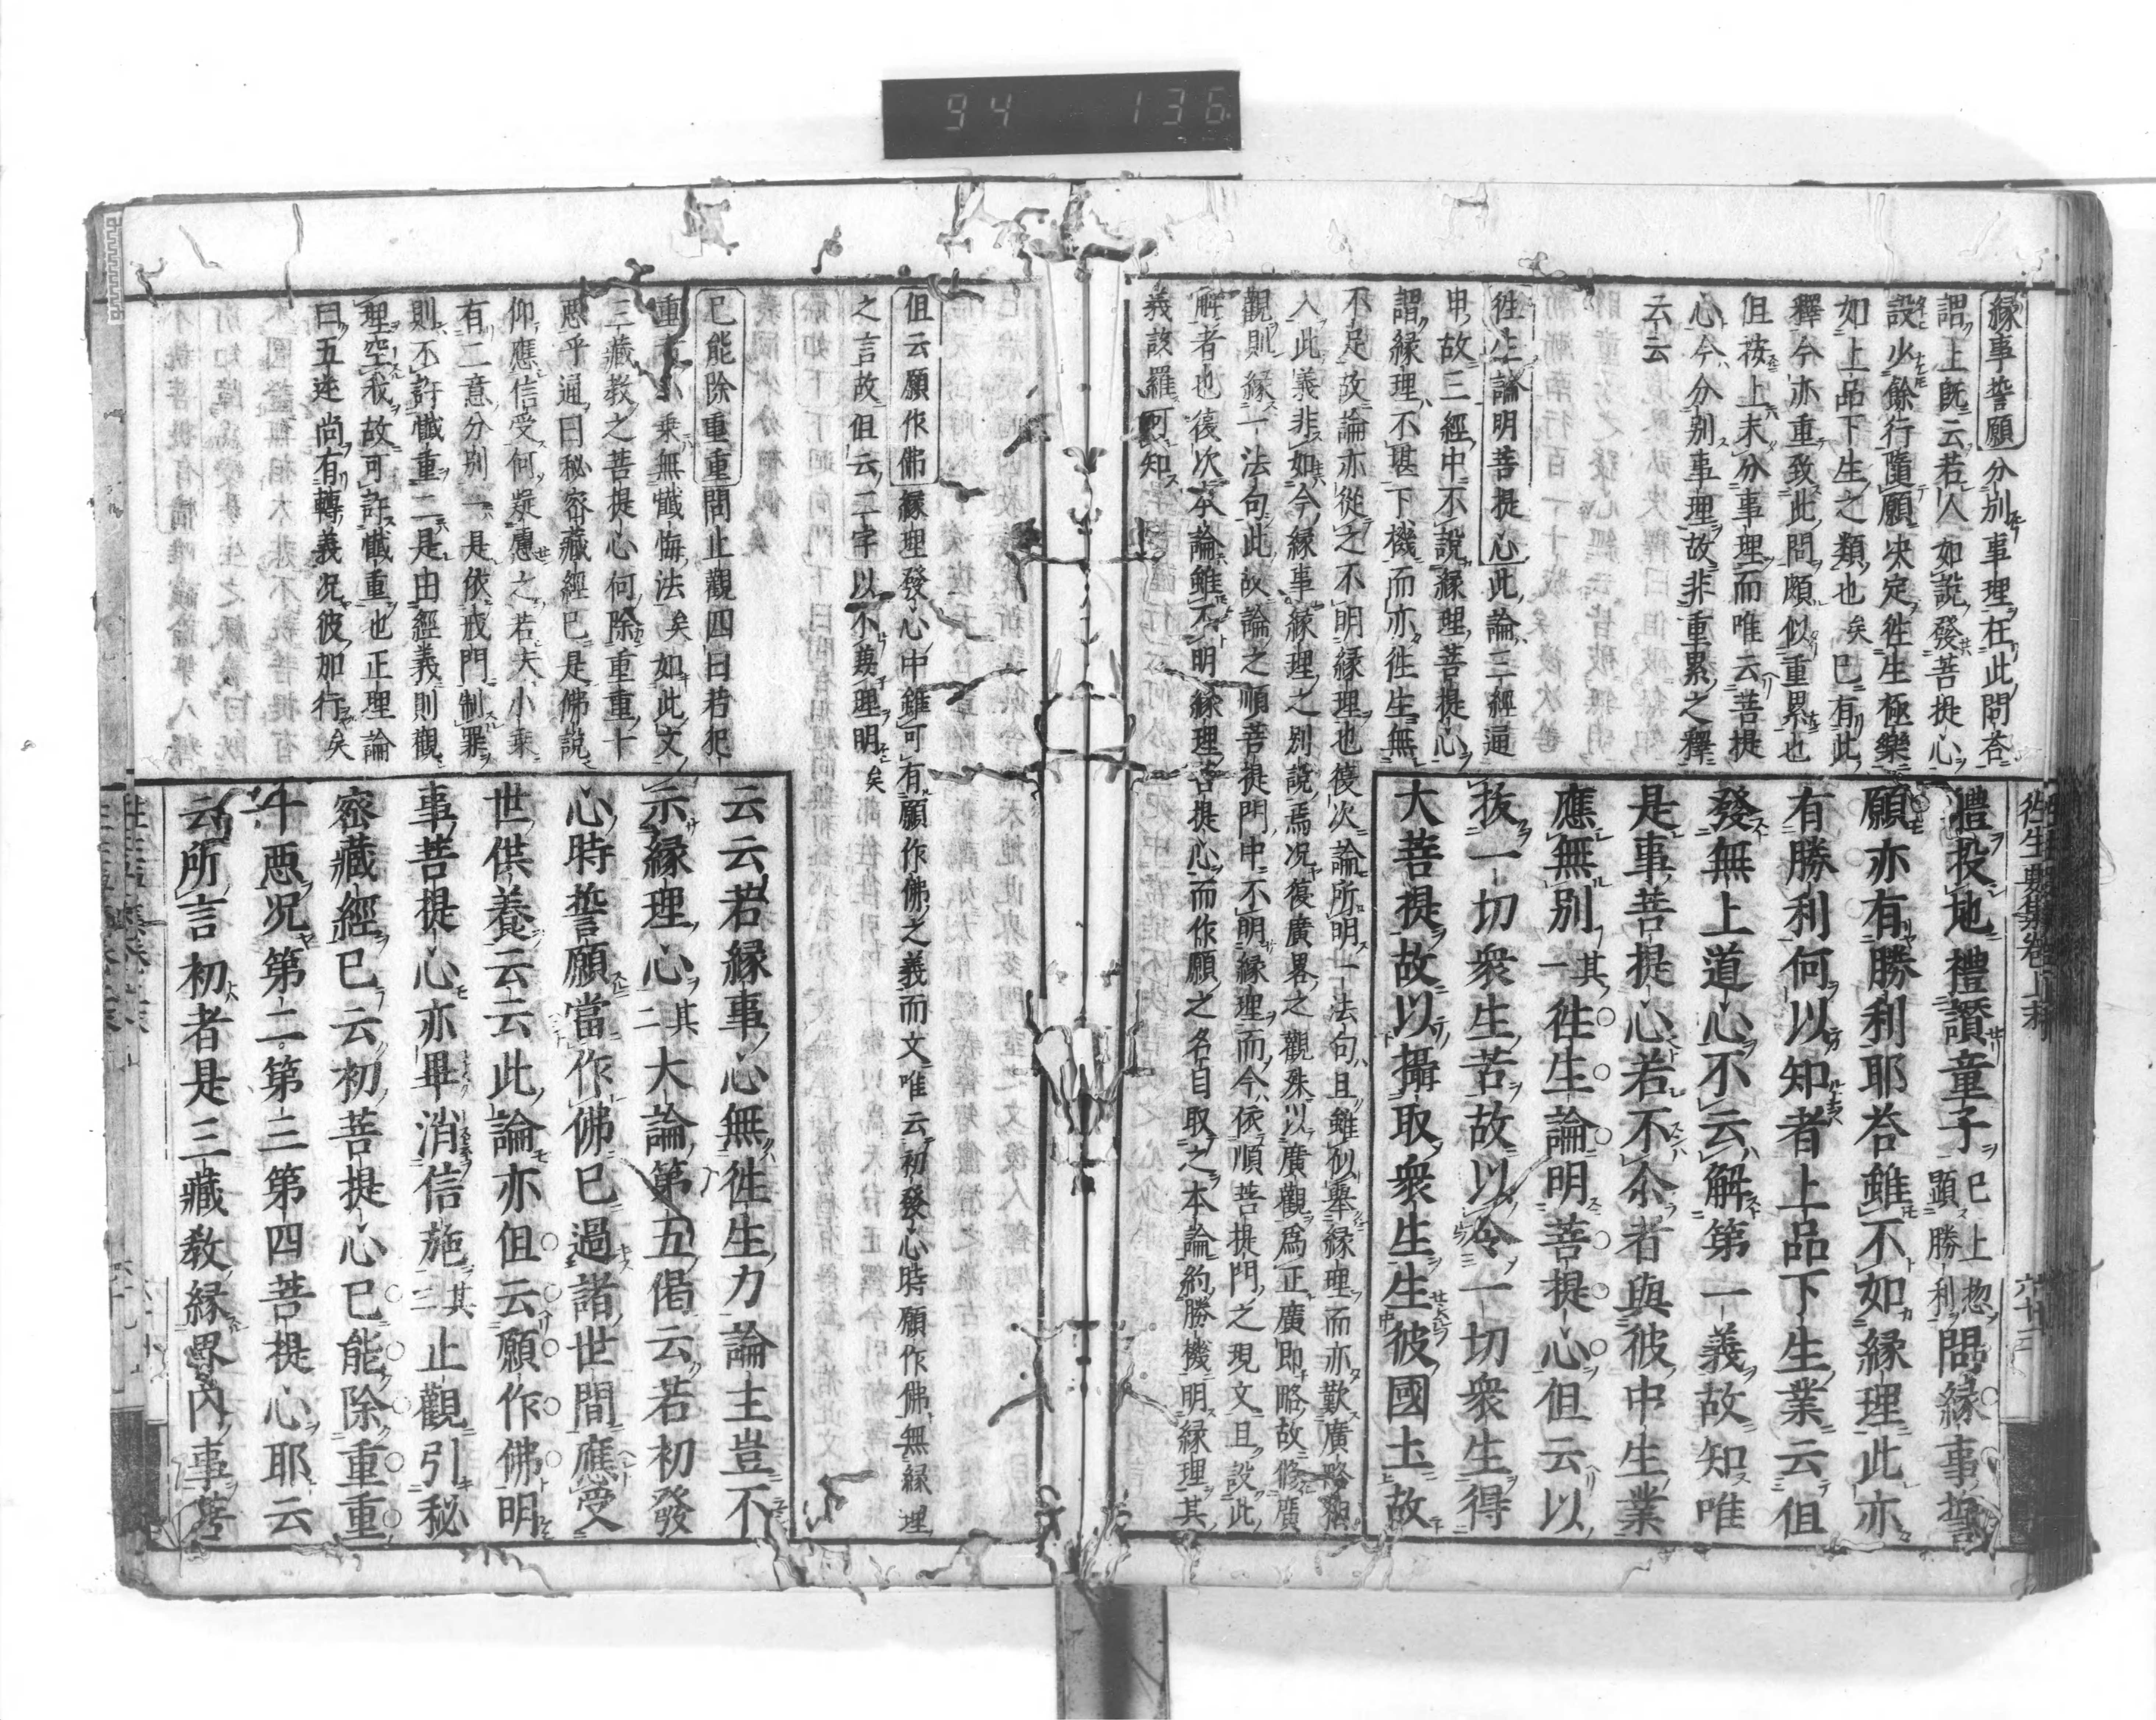 94 136
縁事誓願 分別事理在此問荅
謂上既云若人如說發菩提心
設少餘行隨願決定徃生極樂
如上品下生之類也矣已有此
釋今亦重致此問頗似重累也
但按上末分事理而唯云菩提
心今分別事理故非重累之釋
云云
徃生論明菩提心 此論三經通
申故三經中不說縁理菩提心
謂縁理不堪下機而亦徃生無
不足故論亦從之不明縁理也復次論所明一法句且雖似舉縁理而亦歎廣略相
入此義非如今縁事縁理之別說焉况復廣畧之觀殊以廣觀爲正廣即略故修廣
觀則縁一法句此故論之順菩提門中不明縁理而今依順菩提門之現文且設此
解者也復次本論雖不明縁理菩提心而作願之名自取之本論約勝機明縁理其
義該羅可知
徃生要集卷上末
禮投地禮讚童子 已上惣顯勝利 問縁事誓
願亦有勝利耶荅雖不如縁理此亦
有勝利何以知者上品下生業云但
發無上道心不云解第一義故知唯
是事菩提心若不尒者與彼中生業
應無別 其一 徃生論明菩提心但云以
抜一切衆生苦故以令一切衆生得
大菩提故以攝取衆生生彼國土故
但云願作佛 縁理發心中雖可有願作佛之義而文唯云初發心時願作佛無縁理
之言故但云二字以不蕩理明矣
已能除重重 問止觀四曰若犯
重小乘無懺悔法矣如此文
三藏教之菩提心何除重重十
惡乎通曰秘密藏經已是佛說
仰應信受何疑慮之若大小乗
有二意分別一是依戒門制罪
則不許懺重二是由經義則觀
理空我故可許懺重也正理論
曰五逆尚有轉義况彼加行矣
云云若縁事心無徃生力論主豈不
示縁理心 其二 大論第五偈云若初發
心時誓願當作佛已過諸世間應受
世供養云云此論亦但云願作佛明
事菩提心亦畢消信施 其三 止觀引秘
密藏經已云初菩提心已能除重重
十惡况第二第三第四菩提心耶云
云所言初者是三藏教縁界内事菩